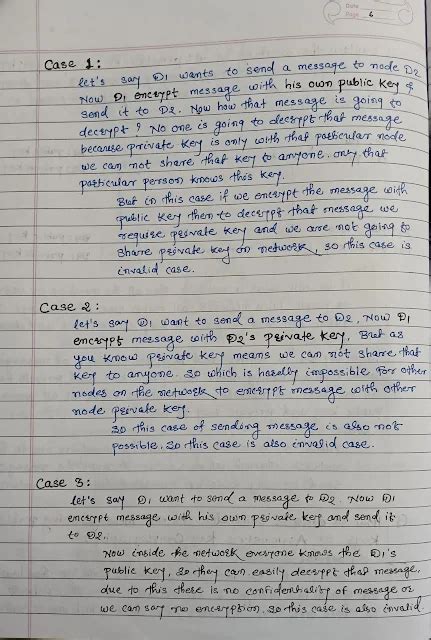 Date
Page 6
Case 1:
let's say D1 wants to send a message to node D2
Now D1 encrypt message with his own public key &
send it to D2. Now how that message is going to
decrypt? No one is going to decrypt that message
because private key is only with that particular node
we can not share that key to anyone. only that
particular person knows this key.
But in this case if we encrypt the message with
public key then to decrypt that message we
require private key and we are not going to
share private key on network, so this case is
invalid case.
Case 2:
let's say D1 want to send a message to D2. Now D1
encrypt message with D2's private key. But as
you know private key means we can not share that
key to anyone. so which is hardly impossible for other
nodes on the network to encrypt message with other
node private key.
so this case of sending message is also not
possible. so this case is also invalid case.
Case 3:
let's say D1 want to send a message to D2. Now D1
encrypt message with his own private key and send it
to D2.
Now inside the network everyone knows the D1's
public key, so they can easily decrypt that message.
due to this there is no confidentiality of message or
we can say no encryption. so this case is also invalid